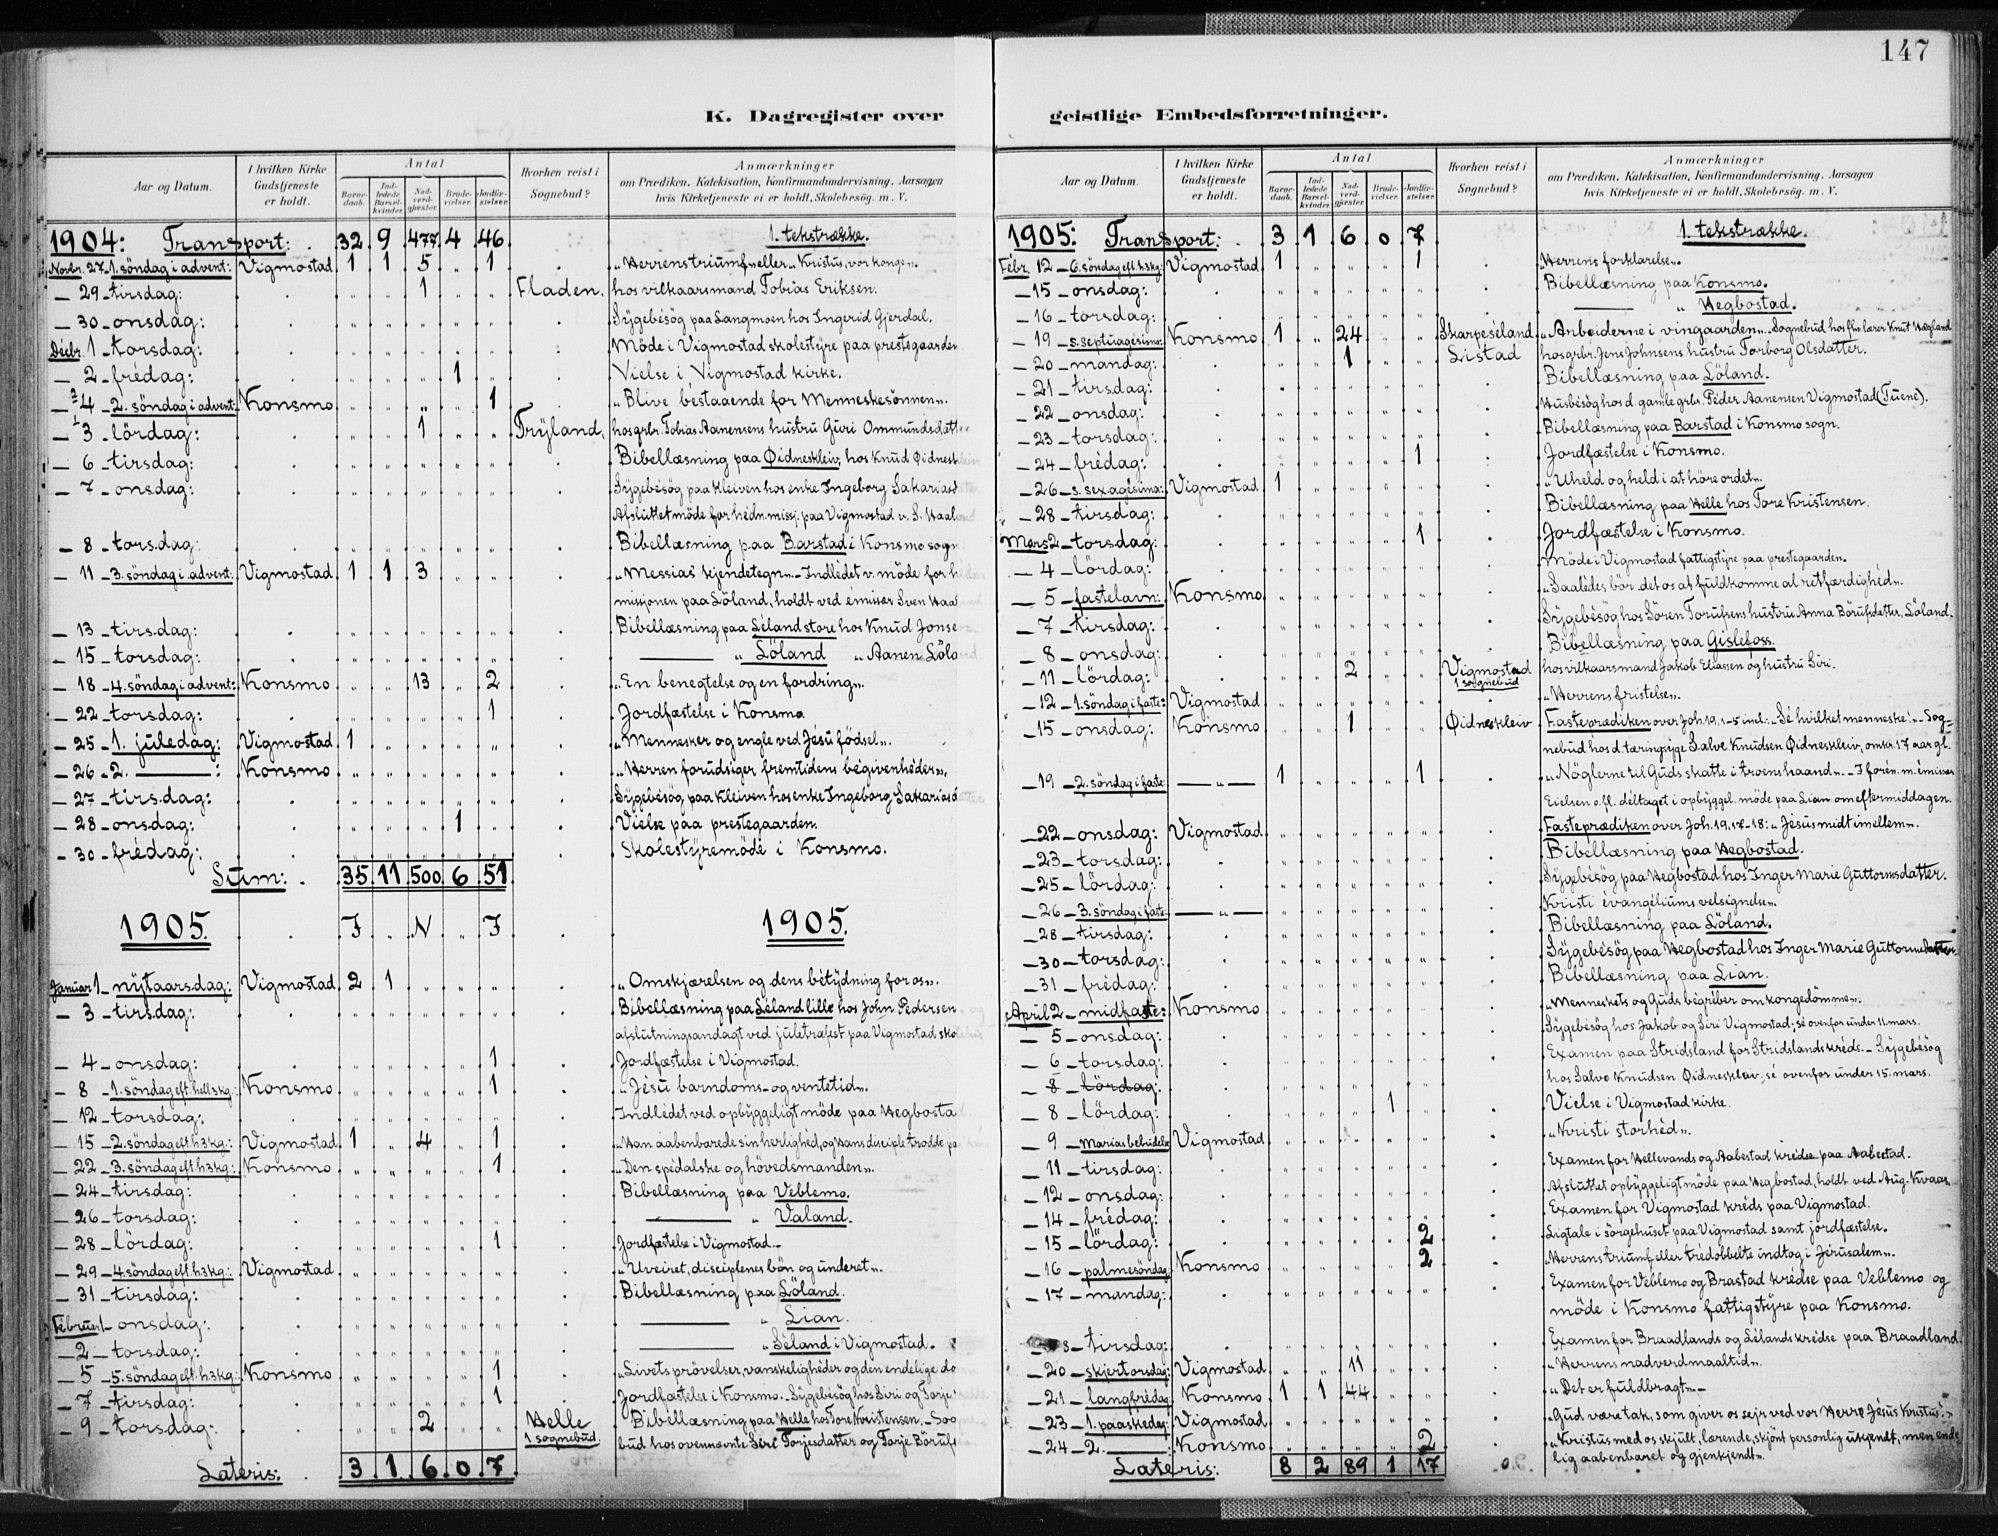 147
K. Dagregister over geistlige Embedsforretninger.
Aar og Datum. I hvilken Kirke Gudstjeneste er holdt. Antal Barnedaab. Indledede Barselkvinder. Nadverdgjæster. Brudevielser. Jordfæstelser. Hvorhen reist i Sognebud? Anmærkninger om Prædiken, Katekisation, Konfirmandundervisning, Aarsagen hvis Kirketjeneste ei er holdt, Skolebesøg. m. V.
1904: Transport: 32 9 477 4 46 1. tekstrække.
Novbr. 27 - 1. söndag i advent: Vigmostad 1 1 5 „ 1 „Herrens triumf“ eller „Kristus, vor konge“.
- 29 - tirsdag: 1 Fladen. hos vilkaarsmand Tobias Eriksen.
- 30 - onsdag: Sygebesög paa Langmoen hos Ingerid Gjerdal.
Decbr. 1 - torsdag: Möde i Vigmostad skolestyre paa prestegaarden
- 2 - fredag: 1 Vielse i Vigmostad kirke.
- 4 - 2. söndag i advent: Konsmo 1 „Blive bestaaende for Menneskesönnen“.
- 3 - lördag: 1 Tryland. hos grbr. Tobias Aanensens hustru Guri Ommundsdatter
- 6 - tirsdag: Bibellæsning paa Øidneskleiv, hos Knud Øidneskleiv
- 7 - onsdag: Sygebesög paa Kleiven hos enke Ingeborg Sakariasdatter
Afsluttet möde for hedn. missj. paa Vigmostad v. S. Haaland
- 8 - torsdag: Bibellæsning paa Barstad i Konsmo sogn
- 11 - 3. söndag i advent: Vigmostad 1 1 3 „Messias' kjendetegn“. - Indledet v. möde for
missjonen paa Löland, holdt ved emissær Sven
- 13 - tirsdag: Bibellæsning paa Leland store hos Knud Jonsen
- 15 - torsdag: ——— „ Löland „ Aanen Löland
- 18 - 4. söndag i advent: Konsmo 13 2 „En benegtelse og en fordring“.
- 22 - torsdag: 1 Jordfæstelse i Konsmo
- 25 - 1. juledag: Vigmostad 1 „Mennesker og engle ved Jesu födsel“.
- 26 - 2. ———: Konsmo „Herren forudsiger fremtidens begivenheder“.
- 27 - tirsdag: Sygebesög paa Kleiven hos enke Ingeborg Sakariasdatter
- 28 - onsdag: 1 Vielse paa prestegaarden.
- 30 - fredag: Skolestyremöde i Konsmo.
Sum: 35 11 500 6 51
1905. J N J 1905.
Januar 1 - nytaarsdag: Vigmostad 2 1 „Omskjærelsen og dens betydning for os“.
- 3 - tirsdag: Bibellæsning paa Leland lille hos John Pedersen og
afslutningsandagt ved juletræfest paa Vigmostad skolehus
- 4 - onsdag: 1 Jordfæstelse i Vigmostad.
- 8 - 1. söndag eft. hell3kg.: Konsmo 1 „Jesu barndoms- og ventetid“.
- 12 - torsdag: Indledet ved opbyggeligt möde paa Hegbostad
- 15 - 2. söndag eft. h3kg.: Vigmostad 1 „ 4 „ 1 „Han aabenbarede sin herlighed, og Hans disciple trodde paa
- 22 - 3. söndag eft. h3kg.: Konsmo 1 „Den spedalske og hövedsmanden“.
- 24 - tirsdag: Bibellæsning paa Veblemo.
- 26 - torsdag: ——— „ Valand.
- 28 - lördag: 1 Jordfæstelse i Vigmostad.
- 29 - 4. söndag eft h3kg.: Vigmostad „Uveiret, disciplenes bön og underet“.
- 31 - tirsdag: Bibellæsning paa Löland.
Februar 1 - onsdag: ——— „ Lian.
- 2 - torsdag: ——— „ Leland i Vigmostad.
- 5 - 5. söndag eft. h3kg.: Konsmo 1 „Livets prövelser, vanskeligheder og den endelige
- 7 - tirsdag: 1 Jordfæstelse i Konsmo. - Sygebesög hos Siri og Tarje
- 9 - torsdag: 2 Helle 1 sognebud. Bibellæsning paa Helle hos Tore Kristensen. - Sogne
bud hos ovennævnte Siri Tarjesdatter og Tarje
Lateris: 3 1 6 0 7
Aar og Datum. I hvilken Kirke Gudstjeneste er holdt. Antal Barnedaab. Indledede Barselkvinder. Nadverdgjæster. Brudevielser. Jordfæstelser. Hvorhen reist i Sognebud? Anmærkninger om Prædiken, Katekisation, Konfirmandundervisning, Aarsagen hvis Kirketjeneste ei er holdt, Skolebesøg. m. V.
1905: Transport: 3 1 6 0 7 1. tekstrække.
Febr. 12 - 6. söndag eft. h3kg: Vigmostad 1 1 „Herrens forklarelse“.
- 15 - onsdag: Bibellæsning paa Konsmo.
- 16 - torsdag: ——— „ Hegbostad.
- 19 - s. septuagesima: Konsmo 1 „ 24 Skarpeseland „Arbeiderne i vingaarden“. Sognebud hos fhv. lærer Knut Hægland
- 20 - mandag: 1 Listad hos grbr. Jens Johnsens hustru Torborg Olsdatter.
- 21 - tirsdag: Bibellæsning paa Löland.
- 22 - onsdag: Husbesög hos d. gamle grbr. Peder Aanensen Vigmostad (Tuene).
- 23 - torsdag: Bibellæsning paa Barstad i Konsmo sogn.
- 24 - fredag: 1 Jordfæstelse i Konsmo.
- 26 - s. sexagesima: Vigmostad 1 „Uheld og held i at höre ordet“.
- 28 - tirsdag: Bibellæsning paa Helle hos Tore Kristensen.
Mars 2 - torsdag: 1 Jordfæstelse i Konsmo.
- 4 - lördag: Möde i Vigmostad fattigstyre paa prestegaarden.
- 5 - fastelavn: Konsmo „Saaledes bör det os at fuldkomme al retfærdighed“.
- 7 - tirsdag: Sygebesög hos Sören Torufsens hustru Anna Börufsdatter, Löland.
- 8 - onsdag: Bibellæsning paa Gislefoss.
- 11 - lördag: 2 Vigmostad 1 sognebud hos vilkaarsmand Jakob Eliassen og hustru Siri.
- 12 - 1. söndag i faste: Vigmostad „Herrens fristelse“.
- 15 - onsdag: Konsmo 1 Øidneskleiv Fasteprædiken over Joh. 19, 1-5 incl.: „Se hvilket menneske!“ - Sog-
nebud hos d. tæringsyge Salve Knudsen Øidneskleiv, omkr. 17 aar gl.
- 19 - 2. söndag i faste: — „ — 1 1 „Nöglerne til Guds skatte i troens haand“. - I foren. m. emissær
Eielsen o. fl. deltaget i opbyggel. möde paa Lian om eftermiddagen.
- 22 - onsdag: Vigmostad Fasteprædiken over Joh. 19, 17-18: „Jesus midt imellem“.
- 23 - torsdag: Bibellæsning paa Hegbostad.
- 25 - lördag: Sygebesög paa Hegbostad hos Inger Marie Guttormsdatter.
- 26 - 3. söndag i faste: — „ — „Kristi evangeliums velsignelse“.
- 28 - tirsdag: Bibellæsning paa Löland.
- 30 - torsdag: Sygebesög paa Hegbostad hos Inger Marie Guttormsdatter.
- 31 - fredag: Bibellæsning paa Lian.
April 2 - midfaste: Konsmo „Menneskets og Guds begreber om kongedömme“.
- 5 - onsdag: Sygebesög hos Jakob og Siri Vigmostad; se ovenfor under 11. mars.
- 6 - torsdag: Examen paa Stridsland for Stridslands kreds. - Sygebesög
- 8 - lördag: hos Salve Knudsen Øidneskleiv, se ovenfor under 15. mars.
- 8 - lördag: 1 Vielse i Vigmostad kirke.
- 9 - Marias bebudelse Vigmostad „Kristi storhed“.
- 11 - tirsdag: Examen for Hellevands og Aabestad kredse paa Aabestad.
- 12 - onsdag: Afsluttet opbyggeligt möde paa Hegbostad, holdt ved Aug. Kvaas.
- 14 - fredag: Examen for Vigmostad kreds paa Vigmostad.
- 15 - lördag: 2 Ligtale i sörgehuset paa Vigmostad samt jordfæstelse.
- 16 - palmesöndag: Konsmo 2 „Herrens triumf eller tredobbelte indtog i Jerusalem“.
- 17 - mandag: Examen for Veblemo og Brastad kredse paa Veblemo og
möde i Konsmo fattigstyre paa Konsmo.
8 - tirsdag: Examen for Braadlands og Lelands kredse paa Braadland.
- 20 - skjertorsdag: Vigmostad 11 „Herrens nadverdmaaltid“.
- 21 - langfredag: Konsmo 1 1 44 „Det er fuldbragt“.
- 23 - 1. paaskedag: Vigmostad „Gud være tak, som giver os sejr ved vor Herre Jesus Kristus!“
- 24 - 2. ——— Konsmo 2 „Kristus med os skjult, lærende, skjönt personlig ukjendt, men ende-
lig aabenbaret og gjenkjendt“.
Lateris: 8 2 89 1 17